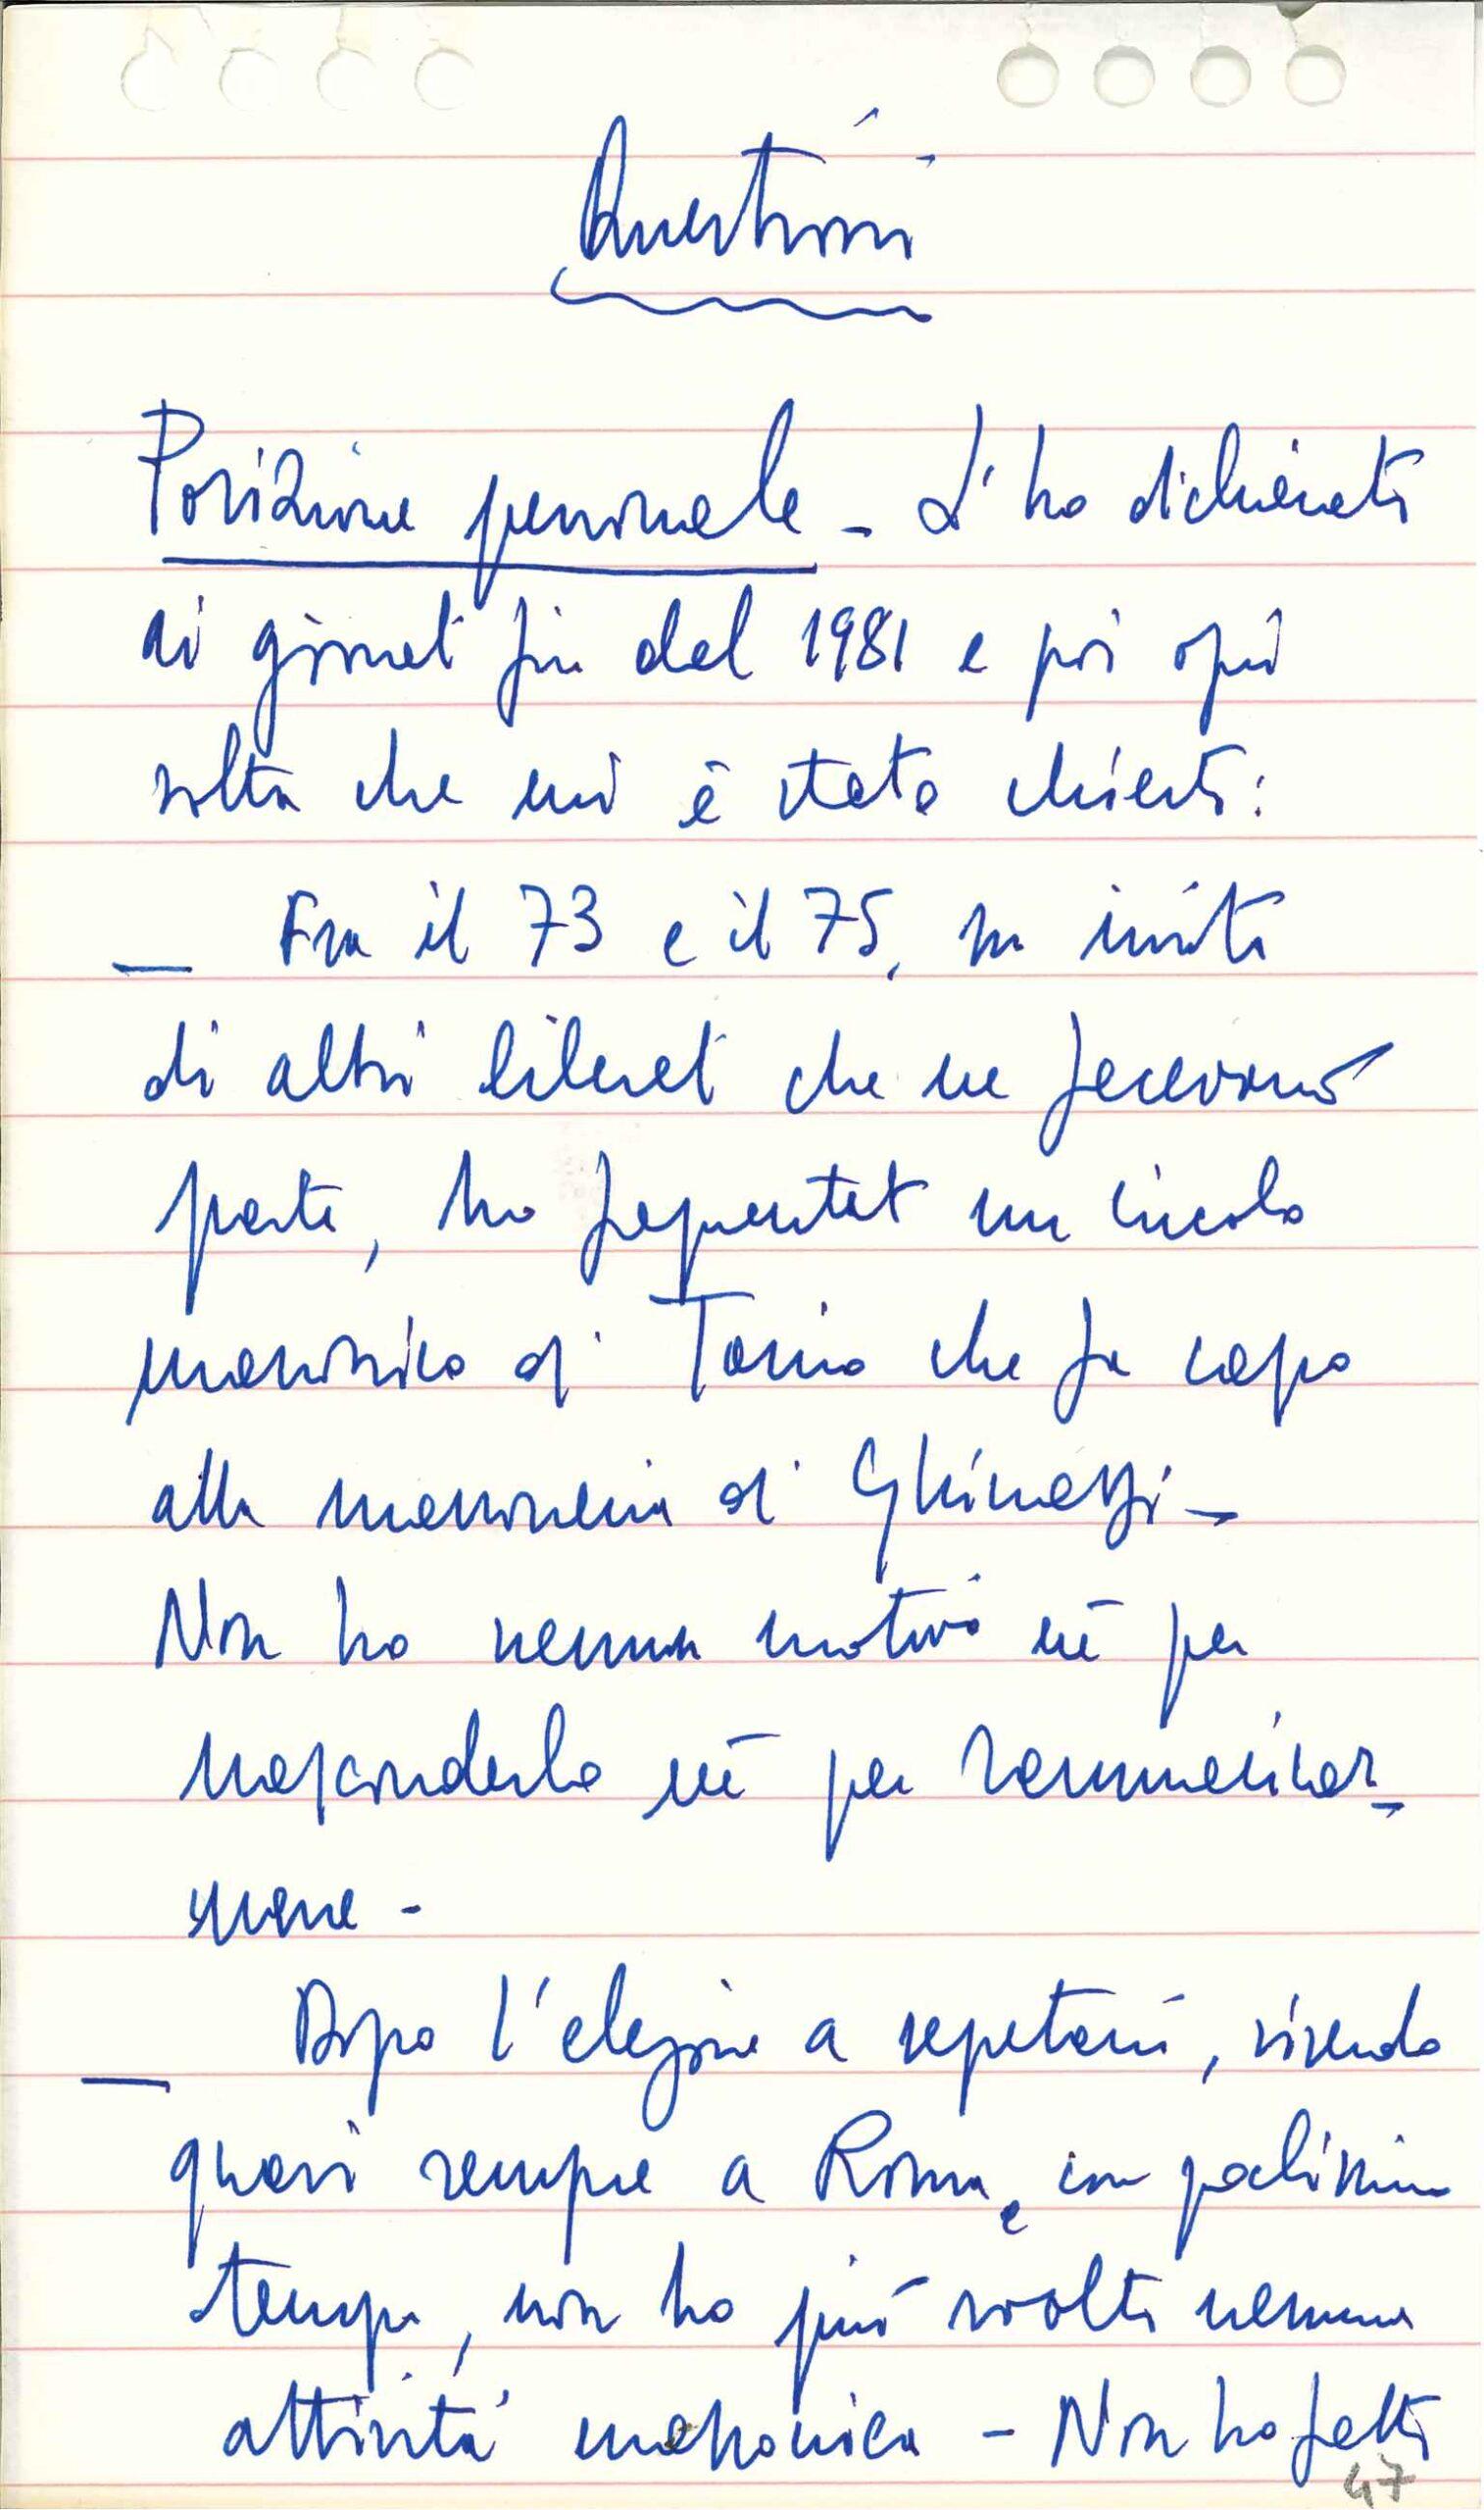 Questioni
Posizione personale - L'ho dichiarato
ai giornali fin dal 1981 e poi ogni
volta che mi è stato chiesto:
— Fra il 73 e il 75, su invito
di altri liberali che ne facevano
parte, ho frequentato un circolo
massonico di Torino che fa capo
alla massoneria di Ghinazzi -
Non ho nessun motivo nè per
nasconderlo nè per rammaricar-
mene -
— Dopo l'elezione a segretario, vivendo
quasi sempre a Roma e con pochissimo
tempo, non ho più svolto nessuna
attività massonica - Non ho fatto
47